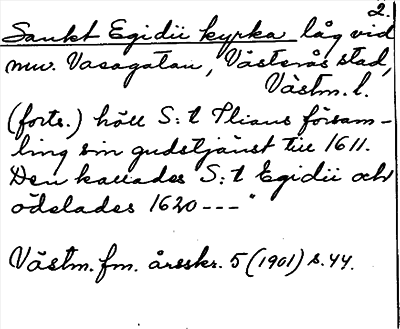 2.
Sankt Egidii kyrka låg vid
nuv. Vasagatan, Västerås stad,
Västm. l.
(forts.) höll S:t Ilians församling
ling sin gudstjänst till 1611.
Den kallades S:t Egidii och
ödelades 1620 --- "
Västm. fm. årsskr. 5 (1901) s. 44.